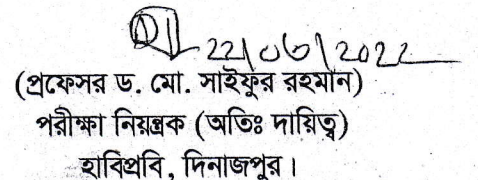 22/06/2022
(প্রফেসর ড. মো. সাইফুর রহমান)
পরীক্ষা নিয়ন্ত্রক (অতিঃ দায়িত্ব)
হাবিপ্রবি, দিনাজপুর।